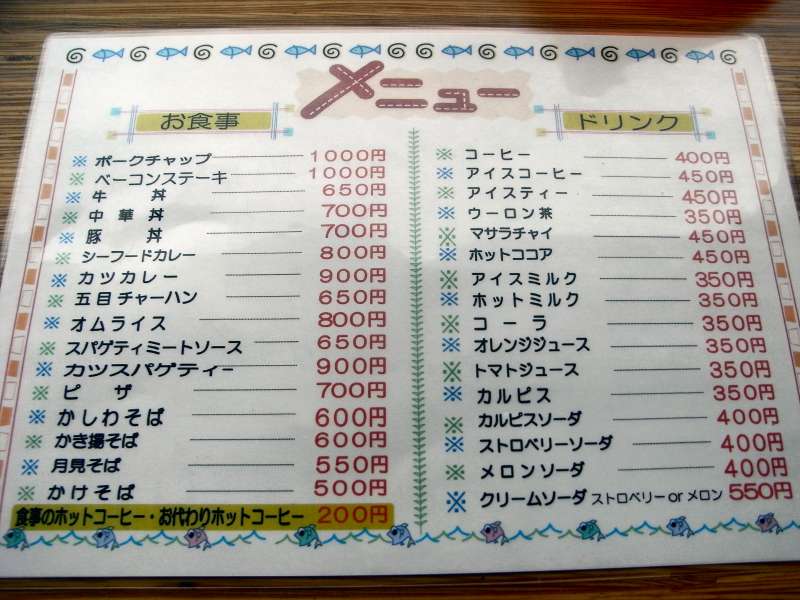 メニュー
お食事
※ ポークチャップ 1000円
※ ベーコンステーキ 1000円
※ 牛丼 650円
※ 中華丼 700円
※ 豚丼 700円
※ シーフードカレー 800円
※ カツカレー 900円
※ 五目チャーハン 650円
※ オムライス 800円
※ スパゲティミートソース 650円
※ カツスパゲティー 900円
※ ピザ 700円
※ かしわそば 600円
※ かき揚そば 600円
※ 月見そば 550円
※ かけそば 500円
食事のホットコーヒー・お代わりホットコーヒー 200円
ドリンク
※ コーヒー 400円
※ アイスコーヒー 450円
※ アイスティー 450円
※ ウーロン茶 350円
※ マサラチャイ 450円
※ ホットココア 450円
※ アイスミルク 350円
※ ホットミルク 350円
※ コーラ 350円
※ オレンジジュース 350円
※ トマトジュース 350円
※ カルピス 350円
※ カルピスソーダ 400円
※ ストロベリーソーダ 400円
※ メロンソーダ 400円
※ クリームソーダ ストロベリー or メロン 550円